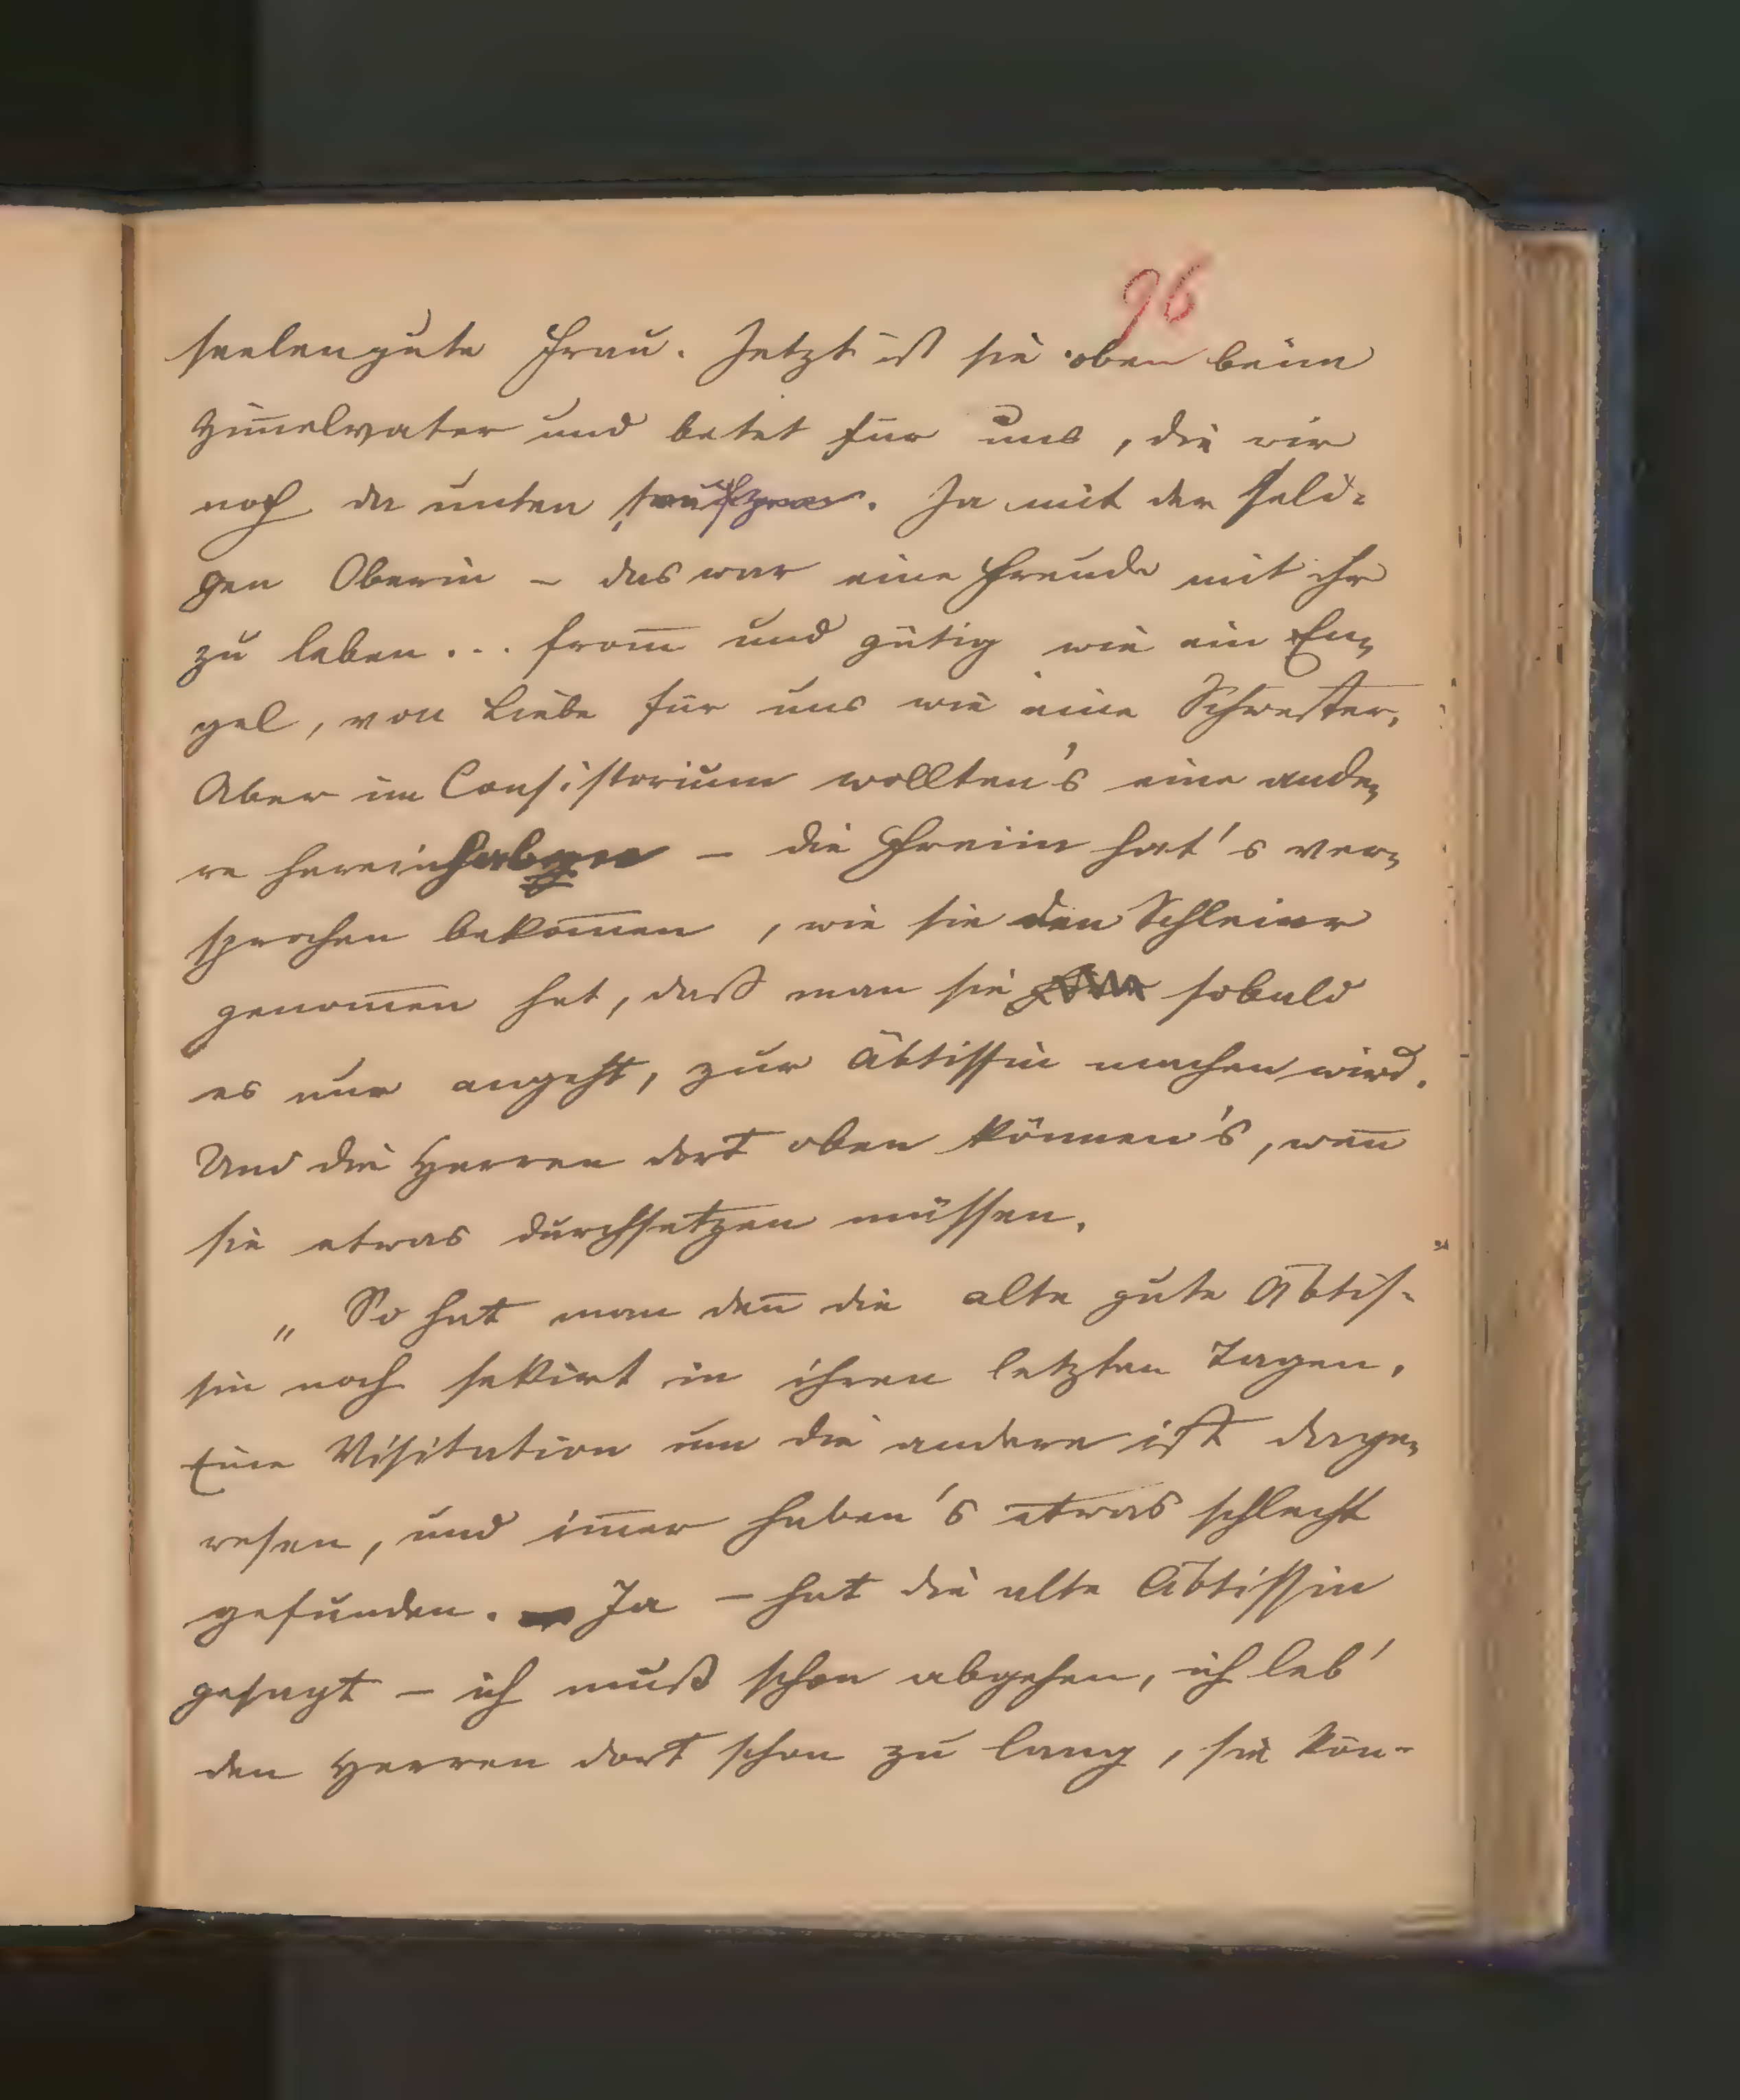 96
seelengute Frau. Jetzt ist sie oben beim
Him̅elvater und betet für uns, die wir
noch da unten seufzen. Ja mit der seli-
gen Oberin – das war eine Freude mit ihr
zu leben... from̅ und gütig wie ein En-
gel, von Liebe für uns wie eine Schwester.
Aber im Consistorium wollten's eine ande-
re hereinhaben – die Freiin hat's ver-
sprochen bekom̅en, wie sie den Schleier
genom̅en hat, daß man sie sobald
es nur angeht, zur Äbtissin machen wird.
Und die Herren dort oben können's, wen̅
sie etwas durchsetzen müssen.
„So hat man den̅ die alte gute Äbtis-
sin noch sekirt in ihren letzten Tagen.
Eine Visitation um die andere ist dage-
wesen, und im̅er haben's etwas schlecht
gefunden. Ja – hat die alte Äbtissin
gesagt – ich muß schon abgehen, ich leb'
den Herren dort schon zu lang, sie kön-